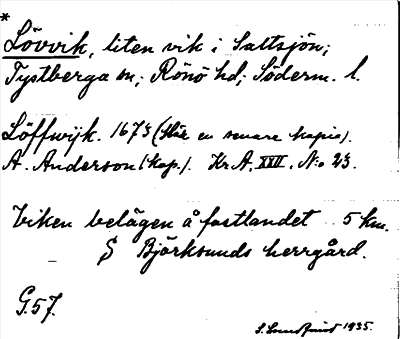 *
Lövvik, liten vik i Saltsjön;
Tystberga sn; Rönö hd; Söderm. l.
Löffwijk. 1673 (där en senare kopia).
A. Anderson (kop.). Kr. A. XXII. No 23.
Viken belägen å fastlandet 5 km.
S Björksunds herrgård.
G. 57.
1935.